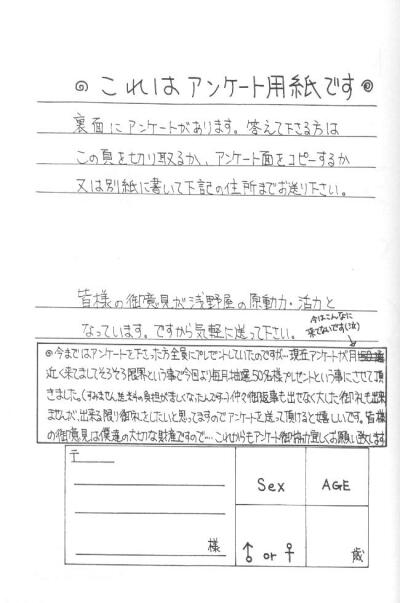 これはアンケート用紙です
裏面にアンケートがあります。答えて下さる方は
この頁を切り取るか、アンケート面をコピーするか
又は別紙に書いて下記の住所までお送り下さい。
皆様の御意見が浅野屋の原動力・活力と
なっています。ですから気軽に送って下さい。
今はこんなに
来てないです(泣)
◎今まではアンケートを下さった方全員にプレゼントしていたのですが…現在アンケートが月
近く来てましてそろそろ限界という事で今回より毎月抽選50名様プレゼントという事にさせて頂
きました。(すみません送料の負担が苦しくなったんですー)仲々御返事も出せなく大した御礼も出来
ませんが、出来る限り御礼をしたいと思ってますのでアンケートを送って頂けると嬉しいです。皆様
の御意見は僕達の大切な財産ですので…これからもアンケート御協力宜しくお願い致します
〒
様
Sex
♂ or ♀
AGE
歳